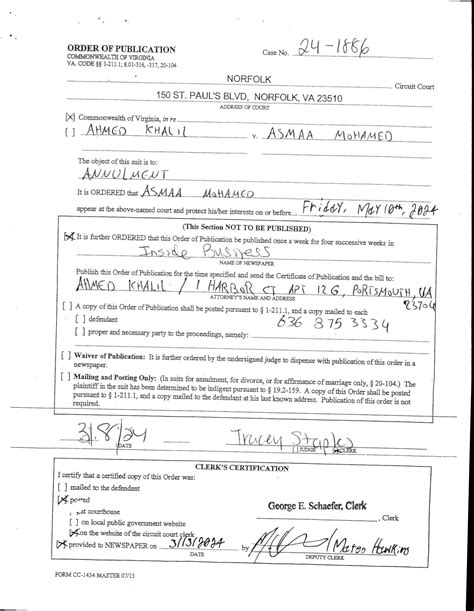 ORDER OF PUBLICATION
COMMONWEALTH OF VIRGINIA
VA. CODE §§ 1-211.1; 8.01-316, -317, 20-104
Case No. 24-1886
NORFOLK
Circuit Court
150 ST. PAUL'S BLVD, NORFOLK, VA 23510
ADDRESS OF COURT
[X] Commonwealth of Virginia, in re
[ ] AHMED KHALIL v. ASMAA MOHAMED
The object of this suit is to:
ANNULMENT
It is ORDERED that ASMAA MOHAMED
appear at the above-named court and protect his/her interests on or before Friday, May 10th, 2024
(This Section NOT TO BE PUBLISHED)
[X] It is further ORDERED that this Order of Publication be published once a week for four successive weeks in
Inside Business
NAME OF NEWSPAPER
Publish this Order of Publication for the time specified and send the Certificate of Publication and the bill to:
AHMED KHALIL / 1 HARBOR CT APT 12G, PORTSMOUTH, VA
ATTORNEY'S NAME AND ADDRESS
23704
[ ] A copy of this Order of Publication shall be posted pursuant to § 1-211.1, and a copy mailed to each
[ ] defendant 636 875 3334
[ ] proper and necessary party to the proceedings, namely:
[ ] Waiver of Publication: It is further ordered by the undersigned judge to dispense with publication of this order in a
newspaper.
[ ] Mailing and Posting Only: (In suits for annulment, for divorce, or for affirmance of marriage only, § 20-104.) The
plaintiff in the suit has been determined to be indigent pursuant to § 19.2-159. A copy of this Order shall be posted
pursuant to § 1-211.1, and a copy mailed to the defendant at his last known address. Publication of this order is not
required.
3/8/24 Tracey Staples
DATE [ ] JUDGE [X] CLERK
CLERK'S CERTIFICATION
I certify that a certified copy of this Order was:
[ ] mailed to the defendant
[X] posted
at courthouse
George E. Schaefer, Clerk
, Clerk
[ ] on local public government website
[X] on the website of the circuit court clerk
[X] provided to NEWSPAPER on 3/13/2024 by
DATE
DEPUTY CLERK
FORM CC-1434 MASTER 07/15